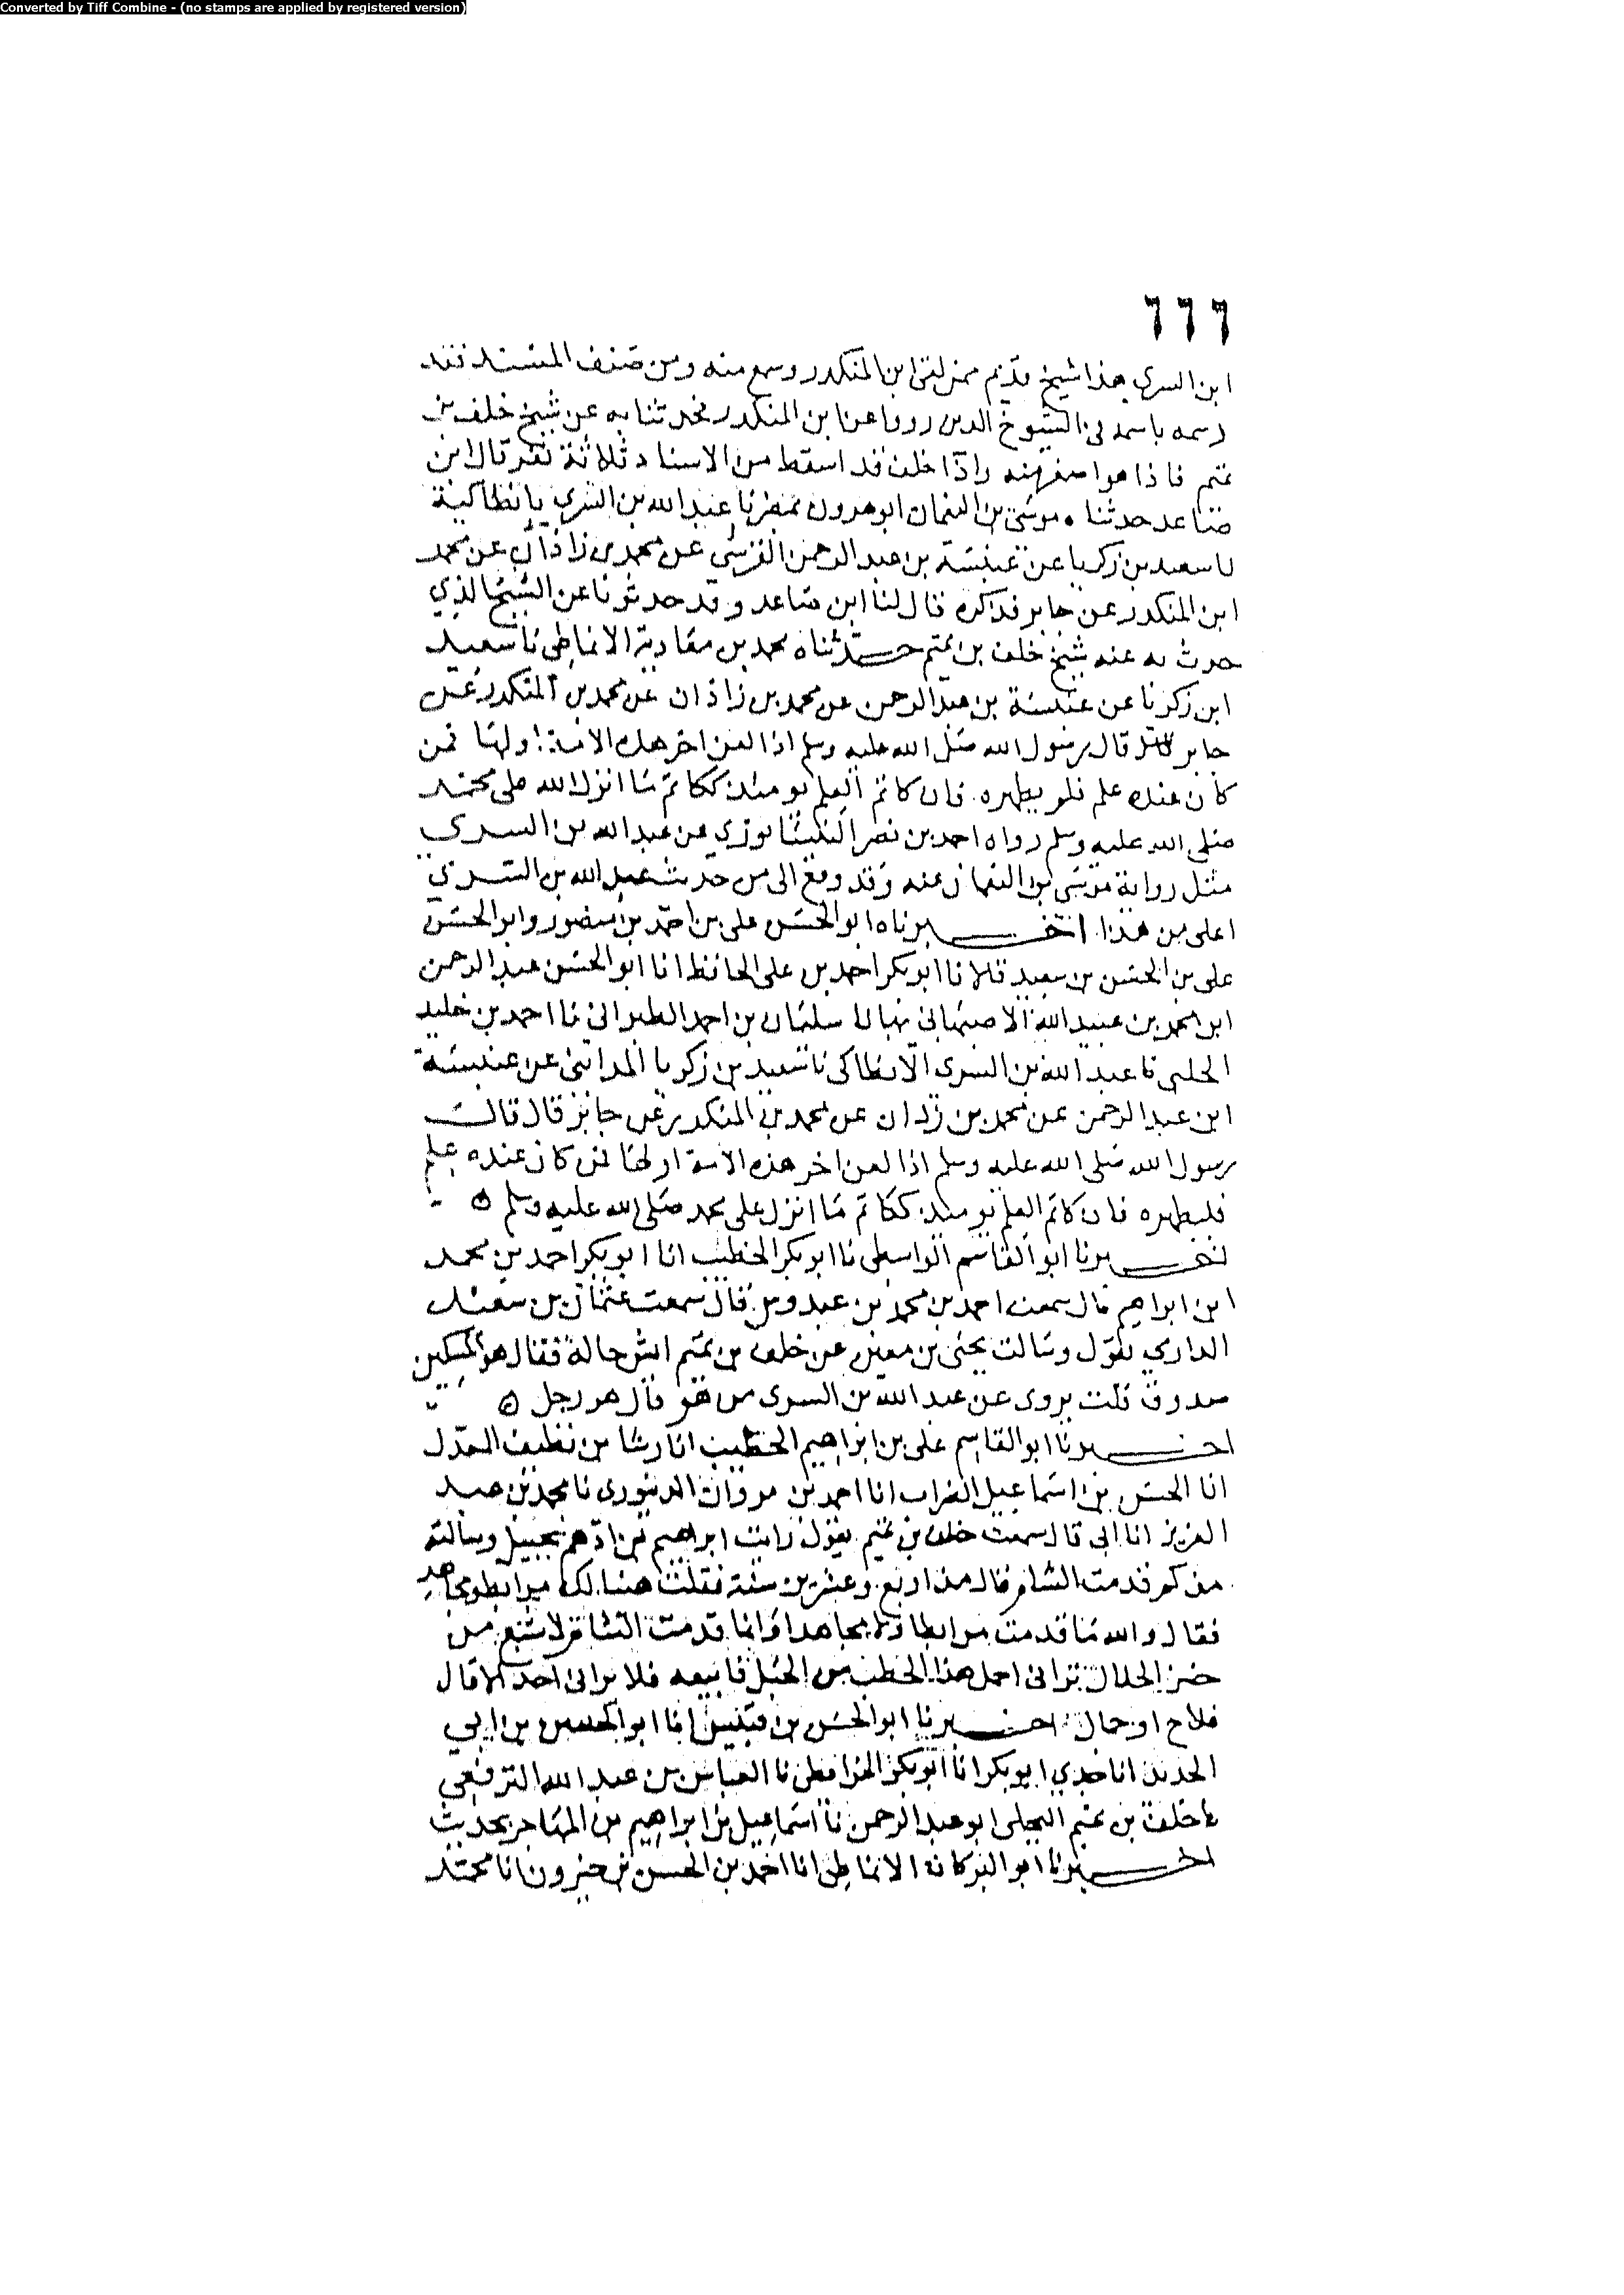 Converted by Tiff Combine - (no stamps are applied by registered version)
٦٦٦
ابن السري هذا شيخ قديم ممن لقي ابن المنكدر وسمع منه ومن صنف المسند فقد
رسمه باسمه في الشيوخ الذين رووا عن ابن المنكدر فحدثنا به عن شيخ خلف بن
تميم فاذا هو اصغر منه واذا خلف قد اسقط من الاسناد ثلاثة نفر قال ابن
صاعد حدثنا موسى بن النعمان ابو هرون بمصر نا عبد الله بن السري بانطاكية
نا سعيد بن زكريا عن عنبسة بن عبد الرحمن القرشي عن محمد بن زاذان عن محمد
ابن المنكدر عن جابر فذكره قال لنا ابن صاعد وقد حدثونا عن الشيخ الذي
حدث به عنه شيخ خلف بن تميم حدثناه محمد بن معاوية الانماطي نا سعيد
ابن زكريا عن عنبسة بن عبد الرحمن عن محمد بن زاذان عن محمد بن المنكدر عن
جابر قال قال رسول الله صلى الله عليه وسلم اذا لعن اخر هذه الامة اولها فمن
كان عنده علم فليظهره فان كاتم العلم يومئذ ككاتم ما انزل الله على محمد
صلى الله عليه وسلم رواه احمد بن نصر النيسابوري عن عبد الله بن السري
مثل رواية موسى بن النعمان عنه وقد وقع الى من حديث عبد الله بن السري
اعلى من هذا اخبرناه ابو الحسن علي بن احمد بن منصور وابو الحسن
علي بن الحسن بن سعيد قالا نا ابو بكر احمد بن علي الحافظ انا ابو الحسن عبد الرحمن
ابن محمد بن عبيد الله الاصبهاني بها نا سليمان بن احمد الطبراني نا احمد بن خليد
الحلبي نا عبد الله بن السري الانطاكي نا سعيد بن زكريا المدائني عن عنبسة
ابن عبد الرحمن عن محمد بن زاذان عن محمد بن المنكدر عن جابر قال قال
رسول الله صلى الله عليه وسلم اذا لعن اخر هذه الامة اولها فمن كان عنده علم
فليظهره فان كاتم العلم يومئذ ككاتم ما انزل على محمد صلى الله عليه وسلم
اخبرنا ابو القاسم الواسطي نا ابو بكر الخطيب انا ابو بكر احمد بن محمد
ابن ابراهيم قال سمعت احمد بن محمد بن عبدوس قال سمعت عثمان بن سعيد
الداري يقول وسالت يحيى بن معين عن خلف بن تميم ايش حاله فقال هو المسكين
صدوق قلت يروى عن عبد الله بن السري من هو قال هو رجل
اخبرنا ابو القاسم علي بن ابراهيم الخطيب انا رشا بن نظيف المعدل
انا الحسن بن اسماعيل الضراب انا احمد بن مروان الدينوري نا محمد بن عبد
العزيز انا ابي قال سمعت خلف بن تميم يقول رايت ابراهيم بن ادهم بجبيل وسالته
مذ كم قدمت الشام قال مذ اربع وعشرين سنة فقلت هنيا لك مرابط ومجاهد
فقال والله ما قدمت مرابطا ولا مجاهدا وانما قدمت الشام لاشبع من
خبز الحلال تراني احمل هذا الحطب من الجبل فابيعه فلا يراني احد الا قال
فلاح او حمال اخبرنا ابو الحسن بن قبيس انا ابو الحسن بن ابي
الحديد انا جدي ابو بكر انا ابو بكر الخرائطي نا العباس بن عبد الله الترقفي
نا خلف بن تميم البجلي ابو عبد الرحمن نا اسماعيل بن ابراهيم بن المهاجر بحديث
اخبرنا ابو البركات الانماطي انا احمد بن الحسن بن خيرون انا محمد